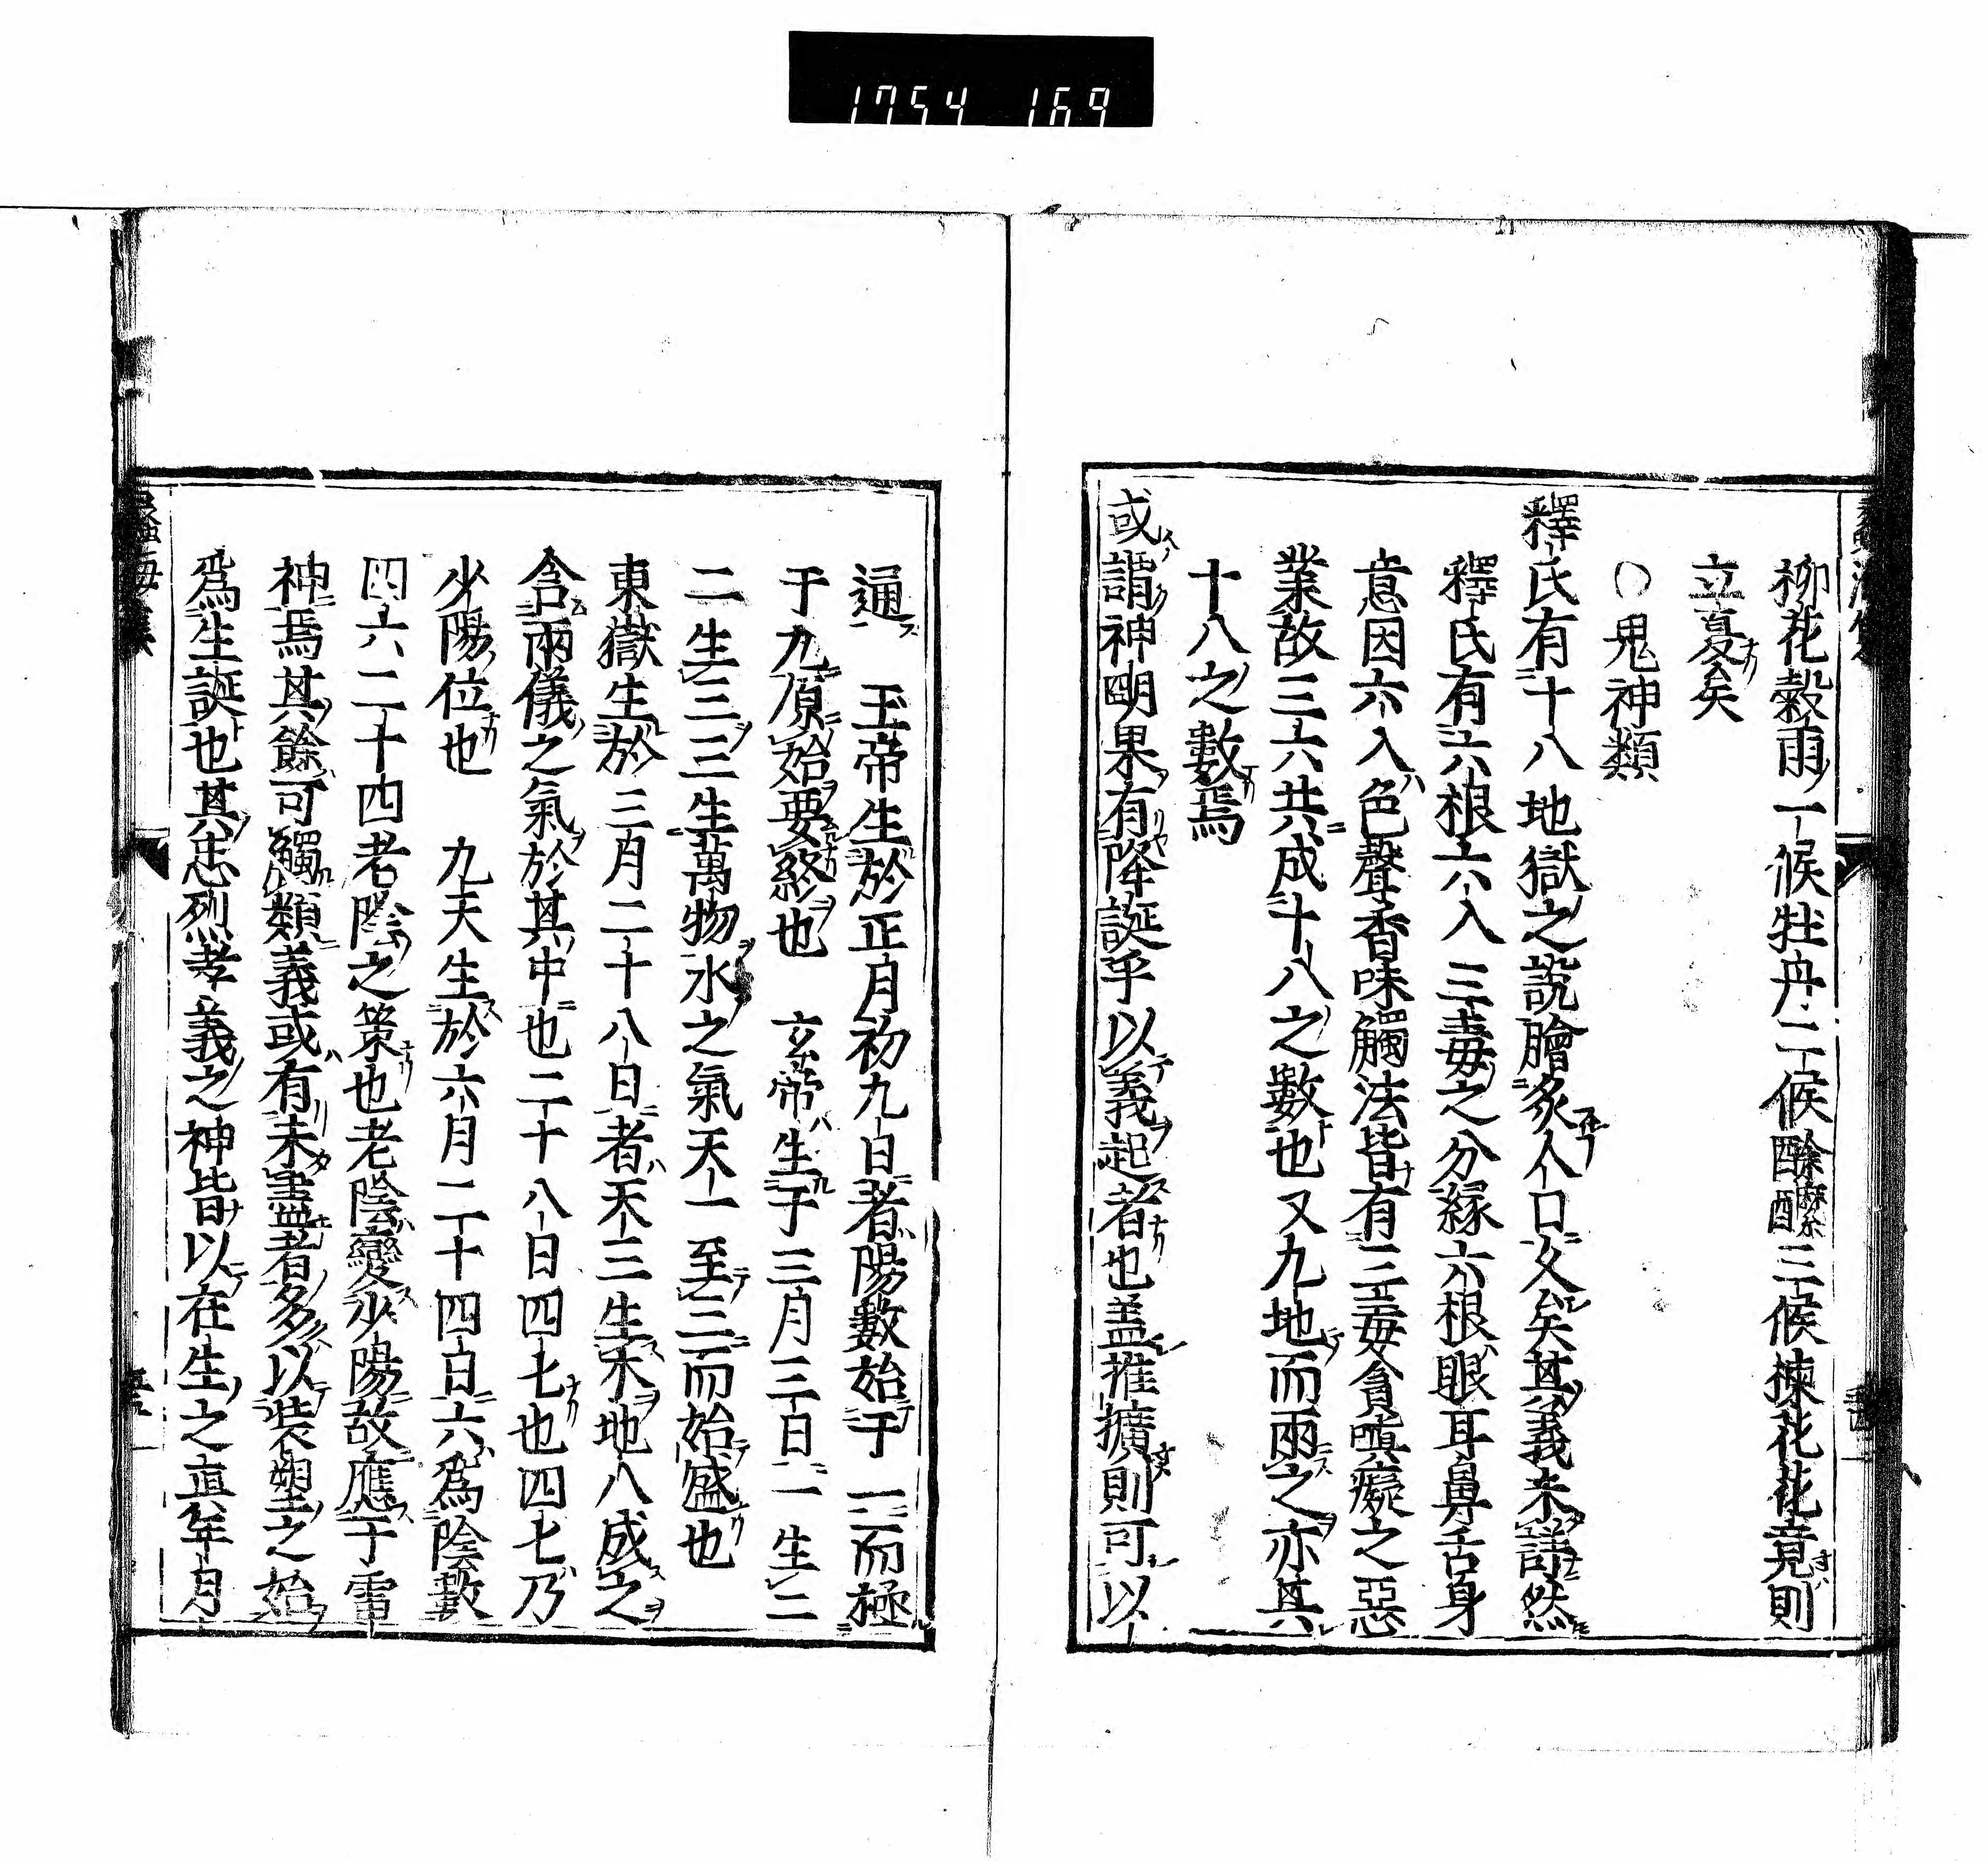 1754 169
柳花穀雨一候牡丹二候酴醿三候楝花花竟則
立夏矣
○鬼神類
釋氏有十八地獄之說膾炙人口久矣其義未詳然
釋氏有六根六入三毒之分緣六根眼耳鼻舌身
意因六入色聲香味觸法皆有三毒貪嗔癡之惡
業故三六共成十八之數也又九地而兩之亦其
十八之數焉
或謂神明果有降誕乎以義起者也盖推擴則可以
通　玉帝生於正月初九日者陽數始于一而極
于九原始要終也　玄帝生于三月三日一生二
二生三三生萬物水之氣天一至三而始盛也
東嶽生於三月二十八日者天三生木地八成之
含兩儀之氣於其中也二十八日四七也四七乃
少陽位也　九天生於六月二十四日六爲陰數
四六二十四老陰之策也老陰變少陽故應于雷
神焉其餘可觸類義或有未盡者多以裝塑之始
爲生誕也其忠烈孝義之神皆以在生之眞年月